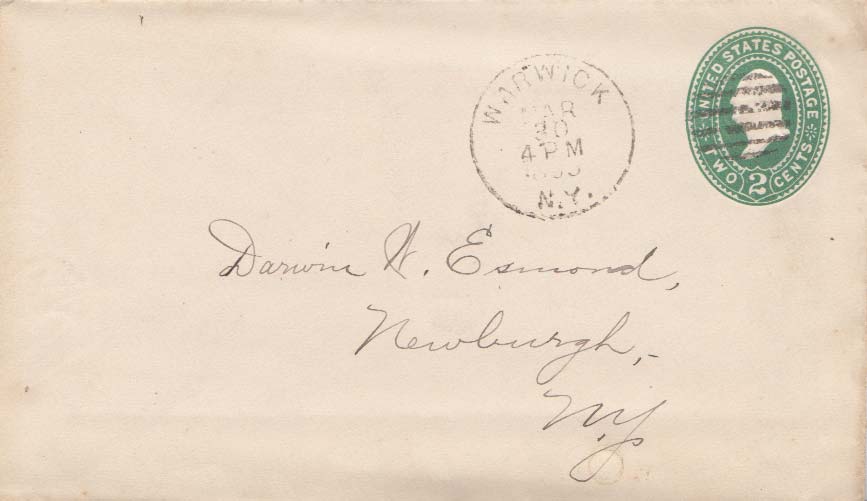 WARWICK
MAR
30
4 PM
N.Y.
UNITED STATES POSTAGE
TWO 2 CENTS
Darwin W. Esmond,
Newburgh,
N.Y.